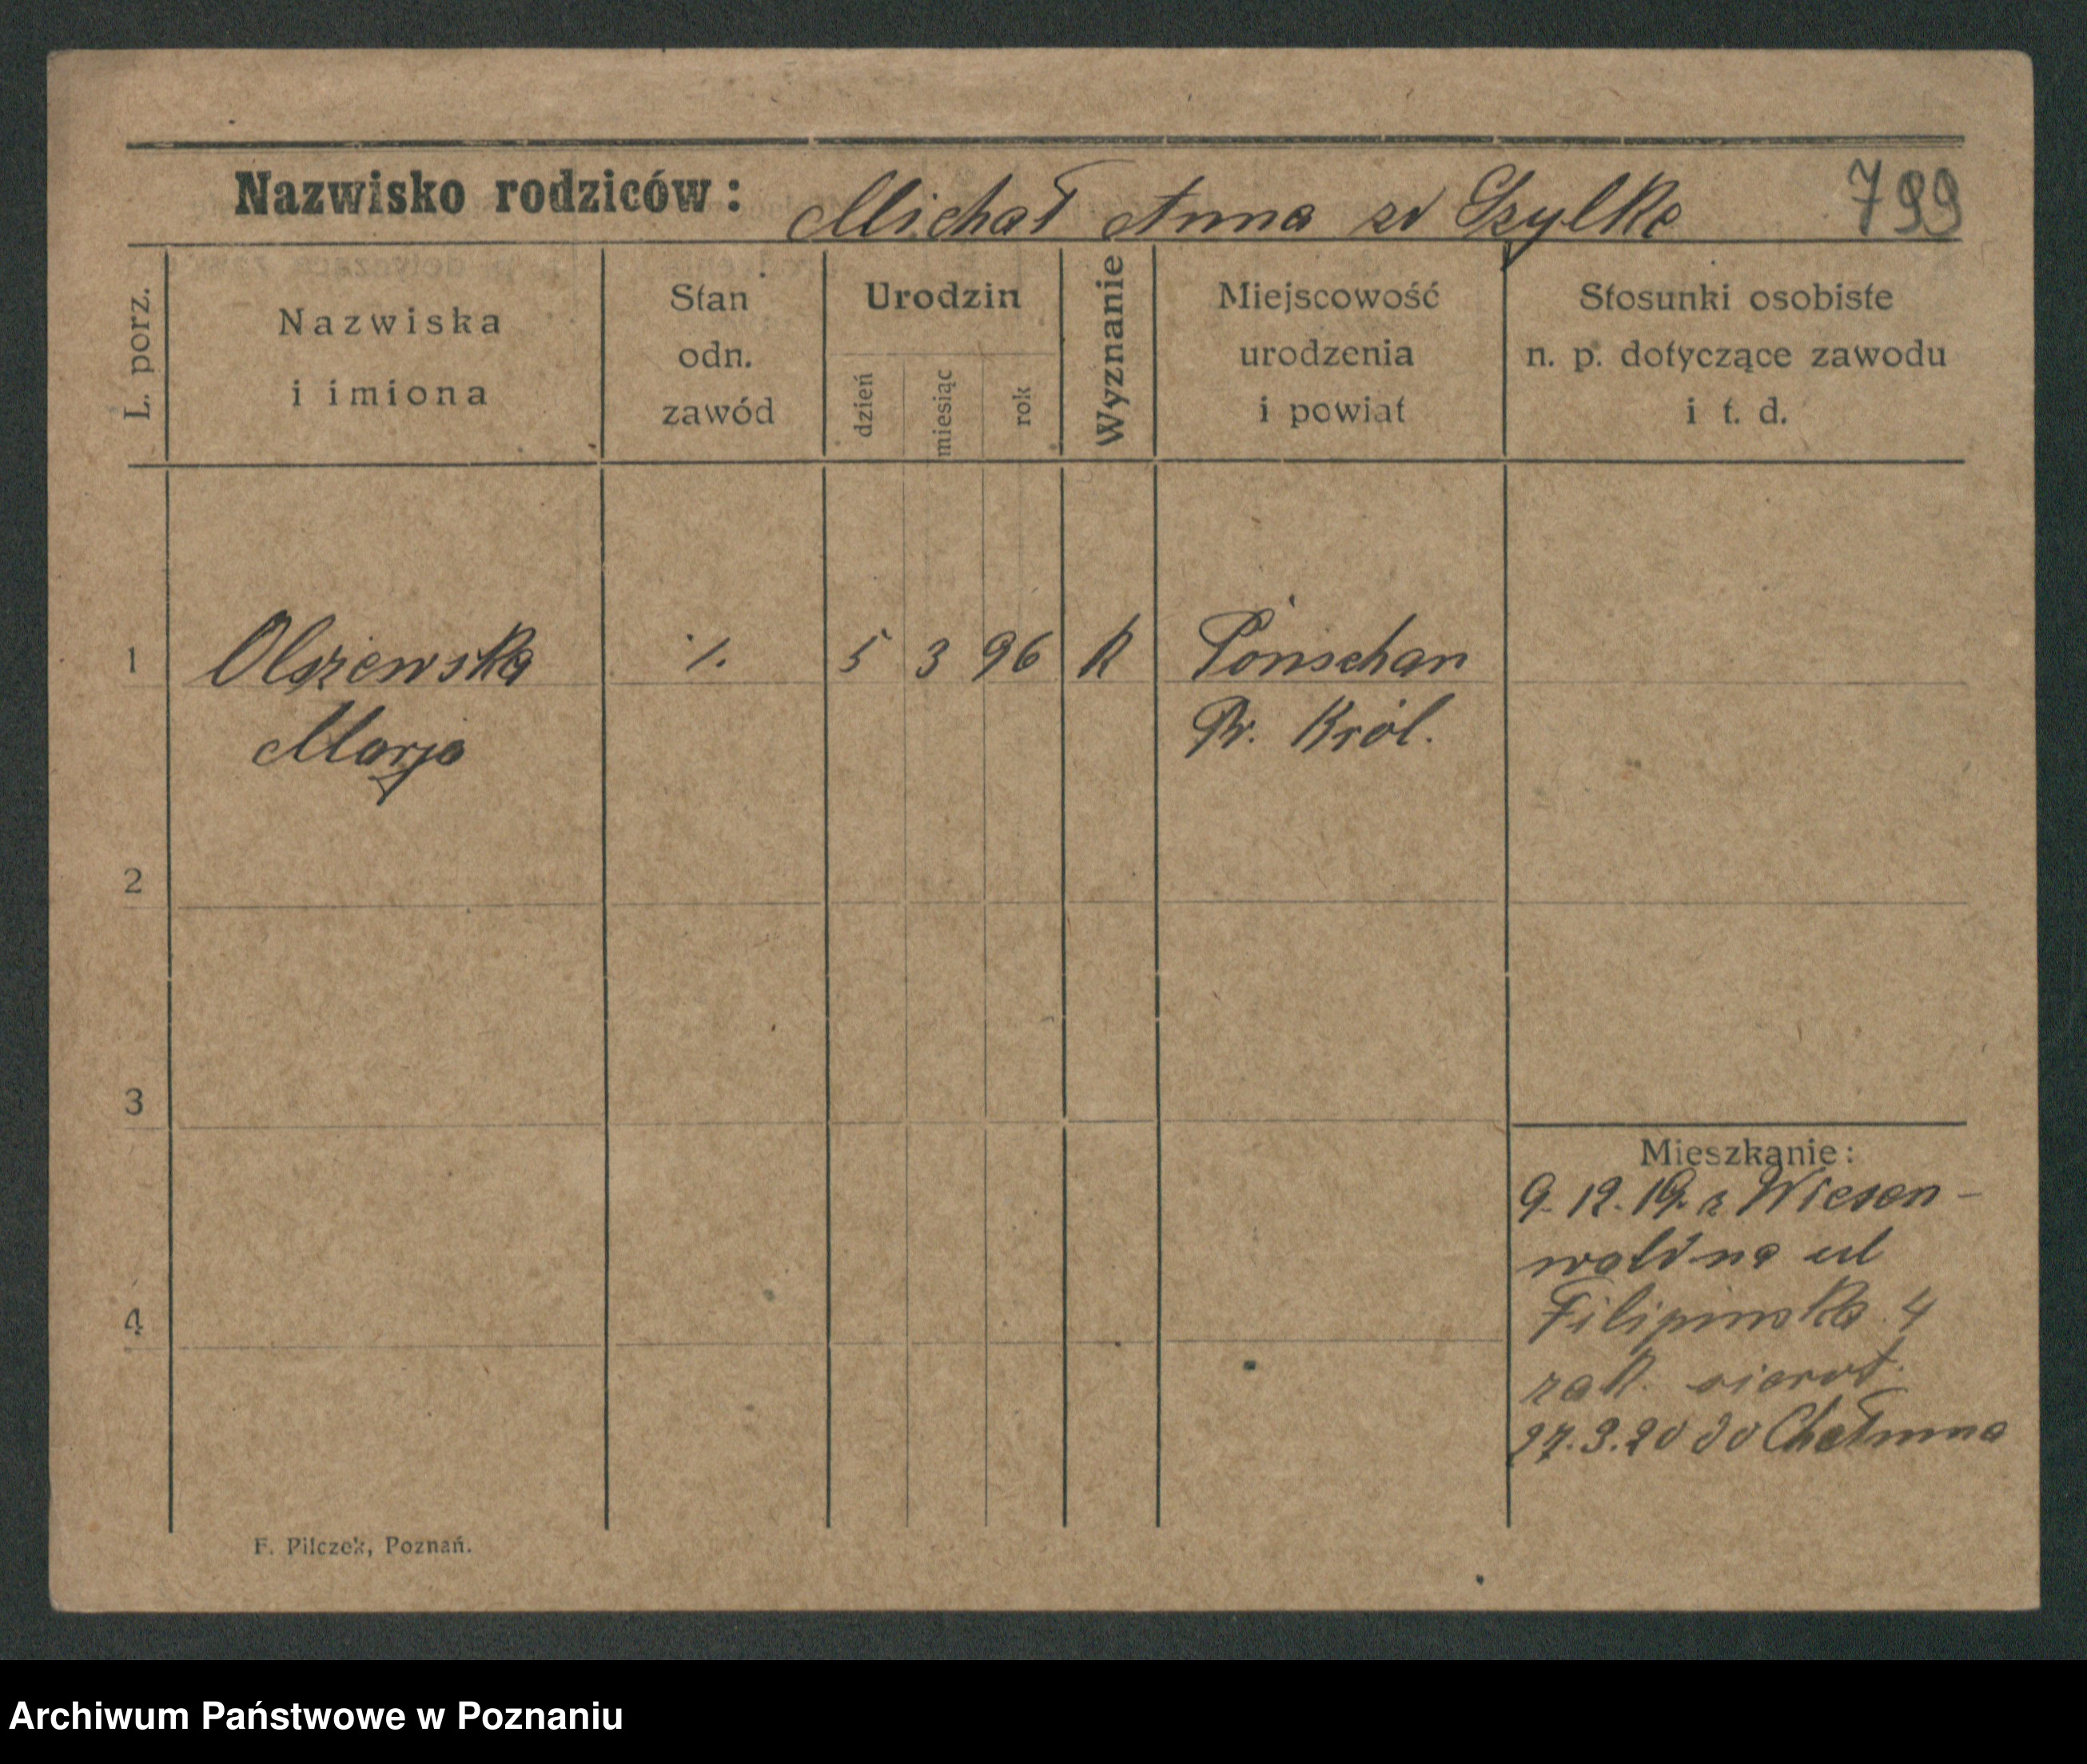 Nazwisko rodziców: Michał Anna zd Szylke 799
L. porz.
Nazwiska
i imiona
Stan
odn.
zawód
Urodzin
dzień
miesiąc
rok
Wyznanie
Miejscowość
urodzenia
i powiat
Stosunki osobiste
n. p. dotyczące zawodu
i t. d.
1 Olszewska ./. 5 3 96 K Ponschan
Marja Pr. Król.
2
3
Mieszkanie:
9.12.19. z Wiesen-
wald na ul
4 Filipinska 4
zak. sierot.
27.3.20 do Chełmna
F. Pilczek, Poznań.
Archiwum Państwowe w Poznaniu